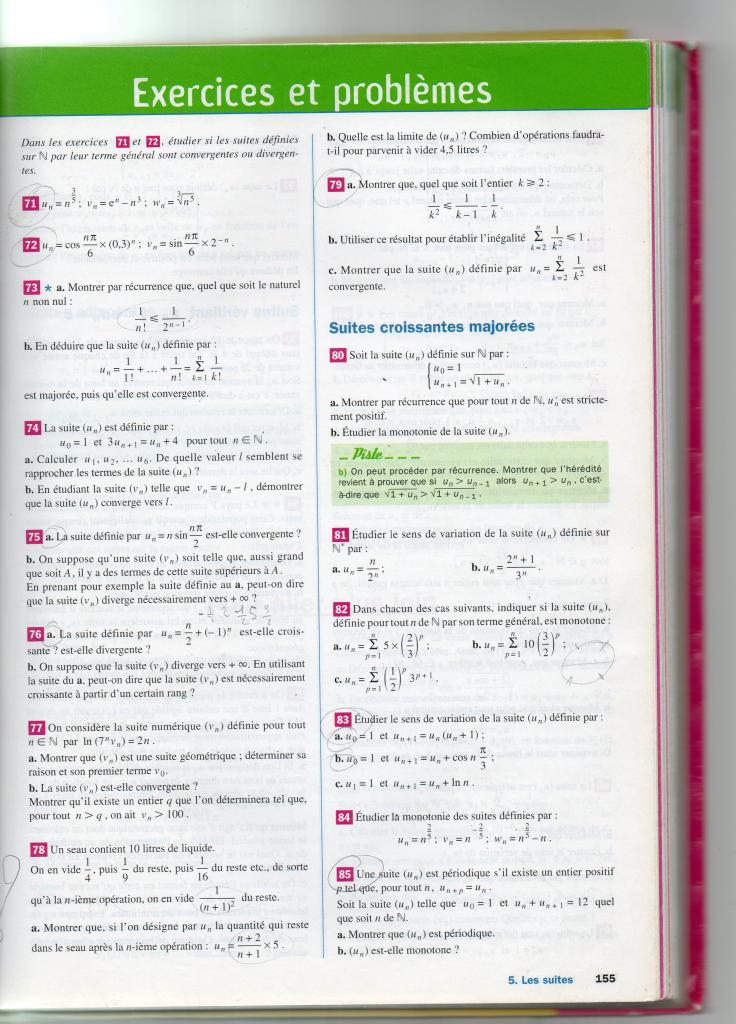 Exercices et problèmes
Dans les exercices 71 et 72, étudier si les suites définies
sur ℕ par leur terme général sont convergentes ou divergen-
tes.
71 uₙ = n^(3/5) ; vₙ = eⁿ – n³ ; wₙ = ∛n⁵ .
72 uₙ = cos nπ/6 × (0,3)ⁿ ; vₙ = sin nπ/6 × 2⁻ⁿ .
73 * a. Montrer par récurrence que, quel que soit le naturel
n non nul :
1/n! ≤ 1/2ⁿ⁻¹ .
b. En déduire que la suite (uₙ) définie par :
uₙ = 1/1! + ... + 1/n! = Σ_{k=1}^{n} 1/k!
est majorée, puis qu'elle est convergente.
74 La suite (uₙ) est définie par :
u₀ = 1 et 3uₙ₊₁ = uₙ + 4 pour tout n ∈ ℕ .
a. Calculer u₁, u₂, ... u₆. De quelle valeur l semblent se
rapprocher les termes de la suite (uₙ) ?
b. En étudiant la suite (vₙ) telle que vₙ = uₙ – l , démontrer
que la suite (uₙ) converge vers l.
75 a. La suite définie par uₙ = n sin nπ/2 est-elle convergente ?
b. On suppose qu'une suite (vₙ) soit telle que, aussi grand
que soit A, il y a des termes de cette suite supérieurs à A.
En prenant pour exemple la suite définie au a, peut-on dire
que la suite (vₙ) diverge nécessairement vers + ∞ ?
76 a. La suite définie par uₙ = n/2 + (–1)ⁿ est-elle crois-
sante ? est-elle divergente ?
b. On suppose que la suite (vₙ) diverge vers + ∞. En utilisant
la suite du a, peut-on dire que la suite (vₙ) est nécessairement
croissante à partir d'un certain rang ?
77 On considère la suite numérique (vₙ) définie pour tout
n ∈ ℕ par ln (7ⁿvₙ) = 2n .
a. Montrer que (vₙ) est une suite géométrique ; déterminer sa
raison et son premier terme v₀.
b. La suite (vₙ) est-elle convergente ?
Montrer qu'il existe un entier q que l'on déterminera tel que,
pour tout n > q , on ait vₙ > 100 .
78 Un seau contient 10 litres de liquide.
On en vide 1/4, puis 1/9 du reste, puis 1/16 du reste etc., de sorte
qu'à la n-ième opération, on en vide 1/(n + 1)² du reste.
a. Montrer que, si l'on désigne par uₙ la quantité qui reste
dans le seau après la n-ième opération : uₙ = (n + 2)/(n + 1) × 5 .
b. Quelle est la limite de (uₙ) ? Combien d'opérations faudra-
t-il pour parvenir à vider 4,5 litres ?
79 a. Montrer que, quel que soit l'entier k ⩾ 2 :
1/k² ≤ 1/(k – 1) – 1/k .
b. Utiliser ce résultat pour établir l'inégalité Σ_{k=2}^{n} 1/k² ≤ 1 .
c. Montrer que la suite (uₙ) définie par uₙ = Σ_{k=2}^{n} 1/k² est
convergente.
Suites croissantes majorées
80 Soit la suite (uₙ) définie sur ℕ par :
{ u₀ = 1
uₙ₊₁ = √(1 + uₙ) .
a. Montrer par récurrence que pour tout n de ℕ, uₙ est stricte-
ment positif.
b. Étudier la monotonie de la suite (uₙ).
... Piste ... ... ...
b) On peut procéder par récurrence. Montrer que l'hérédité
revient à prouver que si uₙ > uₙ₋₁ alors uₙ₊₁ > uₙ , c'est-
à-dire que √(1 + uₙ) > √(1 + uₙ₋₁) .
81 Étudier le sens de variation de la suite (uₙ) définie sur
ℕ* par :
a. uₙ = n/2ⁿ ; b. uₙ = (2ⁿ + 1)/3ⁿ .
82 Dans chacun des cas suivants, indiquer si la suite (uₙ),
définie pour tout n de ℕ par son terme général, est monotone :
a. uₙ = Σ_{p=1}^{n} 5 × (2/3)^p ; b. uₙ = Σ_{p=1}^{n} 10 (3/2)^p ;
c. uₙ = Σ_{p=1}^{n} (1/2)^p 3^(p+1) .
83 Étudier le sens de variation de la suite (uₙ) définie par :
a. u₀ = 1 et uₙ₊₁ = uₙ (uₙ + 1) ;
b. u₀ = 1 et uₙ₊₁ = uₙ + cos n π/3 ;
c. u₁ = 1 et uₙ₊₁ = uₙ + ln n .
84 Étudier la monotonie des suites définies par :
uₙ = n^(2/5) ; vₙ = n^(–2/5) ; wₙ = n^(2/5) – n .
85 Une suite (uₙ) est périodique s'il existe un entier positif
p tel que, pour tout n, uₙ₊ₚ = uₙ .
Soit la suite (uₙ) telle que u₀ = 1 et uₙ + uₙ₊₁ = 12 quel
que soit n de ℕ.
a. Montrer que (uₙ) est périodique.
b. (uₙ) est-elle monotone ?
5. Les suites 155